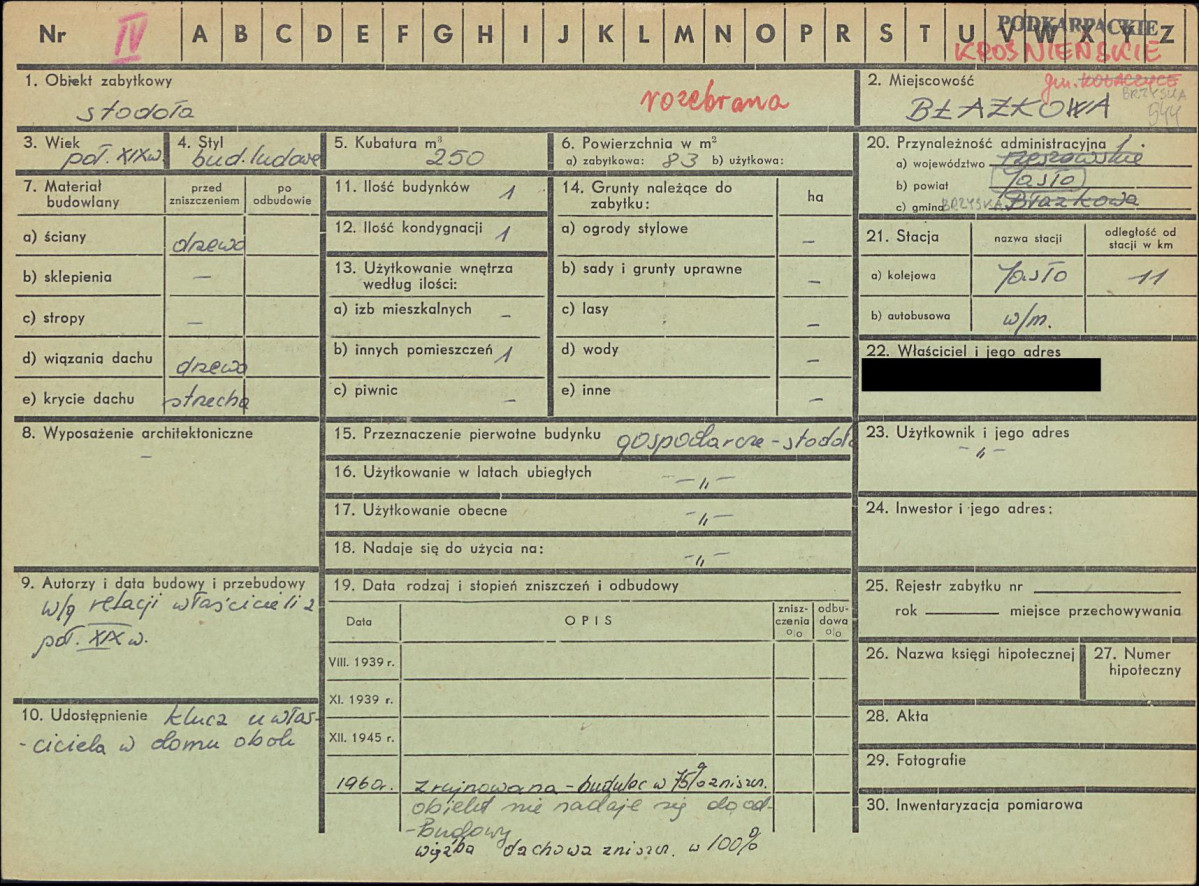 Nr IV A B C D E F G H I J K L M N O P R S T U V W X Y Z
PODKARPACKIE
KROŚNIEŃSKIE
1. Obiekt zabytkowy
stodoła
rozebrana
2. Miejscowość
gm. KOŁACZYCE
BRZYSKA
BŁAŻKOWA
944
3. Wiek
poł. XIX w.
4. Styl
bud. ludowe
5. Kubatura m³
250
6. Powierzchnia w m²
a) zabytkowa: 83 b) użytkowa:
20. Przynależność administracyjna
a) województwo rzeszowskie
b) powiat Jasło
c) gmina BRZYSKA Błażkowa
7. Materiał budowlany
przed zniszczeniem
po odbudowie
a) ściany drzewo
b) sklepienia —
c) stropy —
d) wiązania dachu drzewo
e) krycie dachu strzecha
11. Ilość budynków 1
12. Ilość kondygnacji 1
13. Użytkowanie wnętrza
według ilości:
a) izb mieszkalnych –
b) innych pomieszczeń 1
c) piwnic –
14. Grunty należące do
zabytku:
ha
a) ogrody stylowe –
b) sady i grunty uprawne –
c) lasy –
d) wody –
e) inne –
21. Stacja
nazwa stacji
odległość od
stacji w km
a) kolejowa Jasło 11
b) autobusowa w/m.
22. Właściciel i jego adres
8. Wyposażenie architektoniczne
–
15. Przeznaczenie pierwotne budynku gospodarcze - stodoła
16. Użytkowanie w latach ubiegłych —„—
17. Użytkowanie obecne —„—
18. Nadaje się do użycia na: —„—
23. Użytkownik i jego adres
—„—
24. Inwestor i jego adres:
9. Autorzy i data budowy i przebudowy
w/g relacji właścicieli z
poł. XIX w.
19. Data rodzaj i stopień zniszczeń i odbudowy
Data
OPIS
znisz-
czenia
%
odbu-
dowa
%
VIII. 1939 r.
XI. 1939 r.
XII. 1945 r.
1960r. zrujnowana - budulec w 75% zniszcz.
obiekt nie nadaje się do od-
-budowy
więźba dachowa zniszcz. w 100%
25. Rejestr zabytku nr
rok miejsce przechowywania
26. Nazwa księgi hipotecznej
27. Numer
hipoteczny
10. Udostępnienie klucz u właś-
-ciciela w domu obok
28. Akta
29. Fotografie
30. Inwentaryzacja pomiarowa